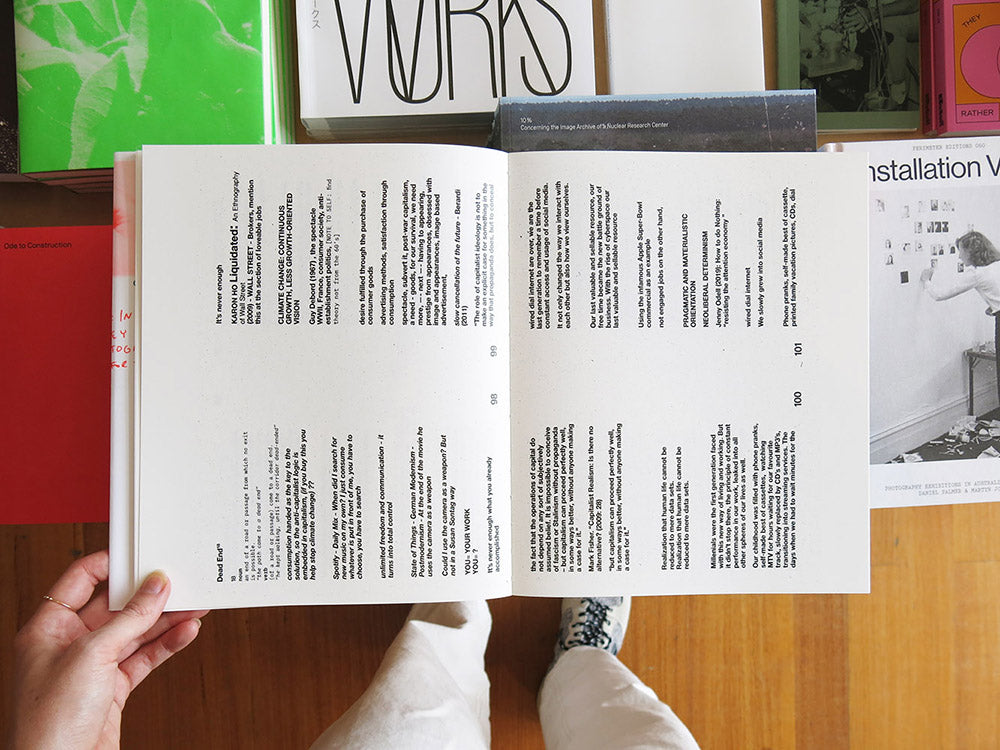 WORKS
10%
Concerning the Image Archive of a Nuclear Research Center
THEY
RATHER
PERIMETER EDITIONS 060
nstallation V
PHOTOGRAPHY EXHIBITIONS IN AUSTRALI
DANIEL PALMER & MARTYN JO
Ode to Construction
IN
Dead End¹⁸
18
noun
an end of a road or passage from which no exit
is possible.
"the path came to a dead end"
verb
(of a road or passage) come to a dead end.
"he kept walking until the corridor dead-ended"
consumption handed as the key to the
solution, so the anti-capitalist logic is
within the capitalism, (if you buy this you
help stop climate change) ??
Spotify - Daily Mix - When did I search for
new music on my own? I just consume
whatever is put in front of me, you have to
choose, you have to search
unlimited freedom and communication - it
turns into total control
State of Things - German Modernism -
Postmodernism - At the end of the movie he
uses the camera as a weapon
Could I use the camera as a weapon? But
not in a Susan Sontag way
YOU= YOUR WORK
YOU= ?
It's never enough what you already
accomplished
98
It's never enough
KAREN HO Liquidated: An Ethnography
of Wall Street
(2009) - WALL STREET - Brokers, mention
this at the section of loveable jobs
CLIMATE CHANGE: CONTINUOUS
GROWTH, LESS GROWTH-ORIENTED
VISION
Guy Debord (1967), the spectacle
WWII, France, consumer society, anti-
establishment politics, [NOTE TO SELF: find
theory not from the 60's]
desire fulfilled through the purchase of
consumer goods
advertising methods, satisfaction through
consumption
spectacle, subvert it, post-war capitalism,
a need - goods, for our survival, we need
more, --- next --- having to appearing,
prestige from appearances, obsessed with
image and appearances, image based
advertisement,
slow cancellation of the future - Berardi
(2011)
"The role of capitalist ideology is not to
make an explicit case for something in the
way that propaganda does, but to conceal
99
the fact that the operations of capital do
not depend on any sort of subjectively
assumed belief. It is impossible to conceive
of fascism or Stalinism without propaganda
- but capitalism can proceed perfectly well,
in some ways better, without anyone making
a case for it."
Mark Fisher. "Capitalist Realism: Is there no
alternative? (2009: 28)
"but capitalism can proceed perfectly well,
in some ways better, without anyone making
a case for it."
Realization that human life cannot be
reduced to mere data sets.
Realization that human life cannot be
reduced to mere data sets.
Millenials were the first generation faced
with this new way of living and working. But
it didn't stop there, the principle of constant
performance in our work, leaked into all
other spheres of our lives as well.
Our childhood was filled with phone pranks,
self-made best of cassettes, watching
MTV for hours waiting for our favourite
track, slowly replaced by CD's and MP3's,
translating into streaming services. The
days when we had to wait minutes for the
100
wired dial internet are over, we are the
last generation to remember a time before
constant access and usage of social media.
It not only changed the way we interact with
each other but also how we view ourselves.
Our last valuable and sellable resource, our
free time became the new battle ground of
business. With the rise of cyberspace our
last valuable and sellable resource
Using the infamous Apple Super-Bowl
commercial as an example
not engaged jobs on the other hand,
PRAGMATIC AND MATERIALISTIC
ORIENTATION
NEOLIBERAL DETERMINISM
Jenny Odell (2019): How to do Nothing:
"resisting the attention economy"
wired dial internet
We slowly grew into social media
Phone pranks, self-made best of cassette,
printed family vacation pictures, CDs, dial
101